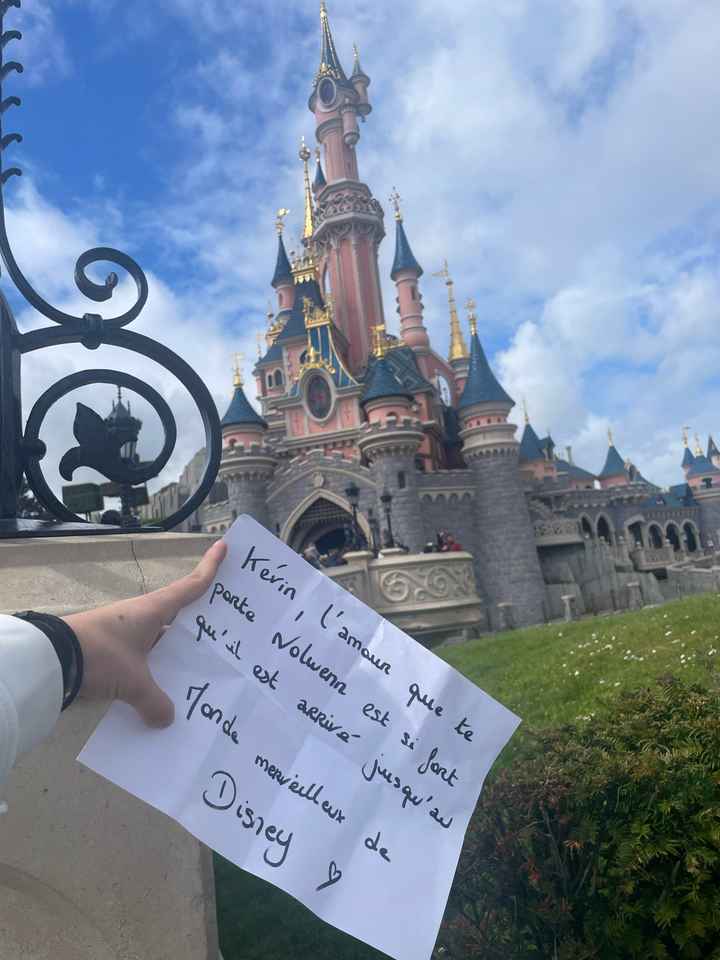 Kévin, l'amour que te
porte Nolwenn est si fort
qu'il est arrivé jusqu'au
Monde merveilleux de
Disney